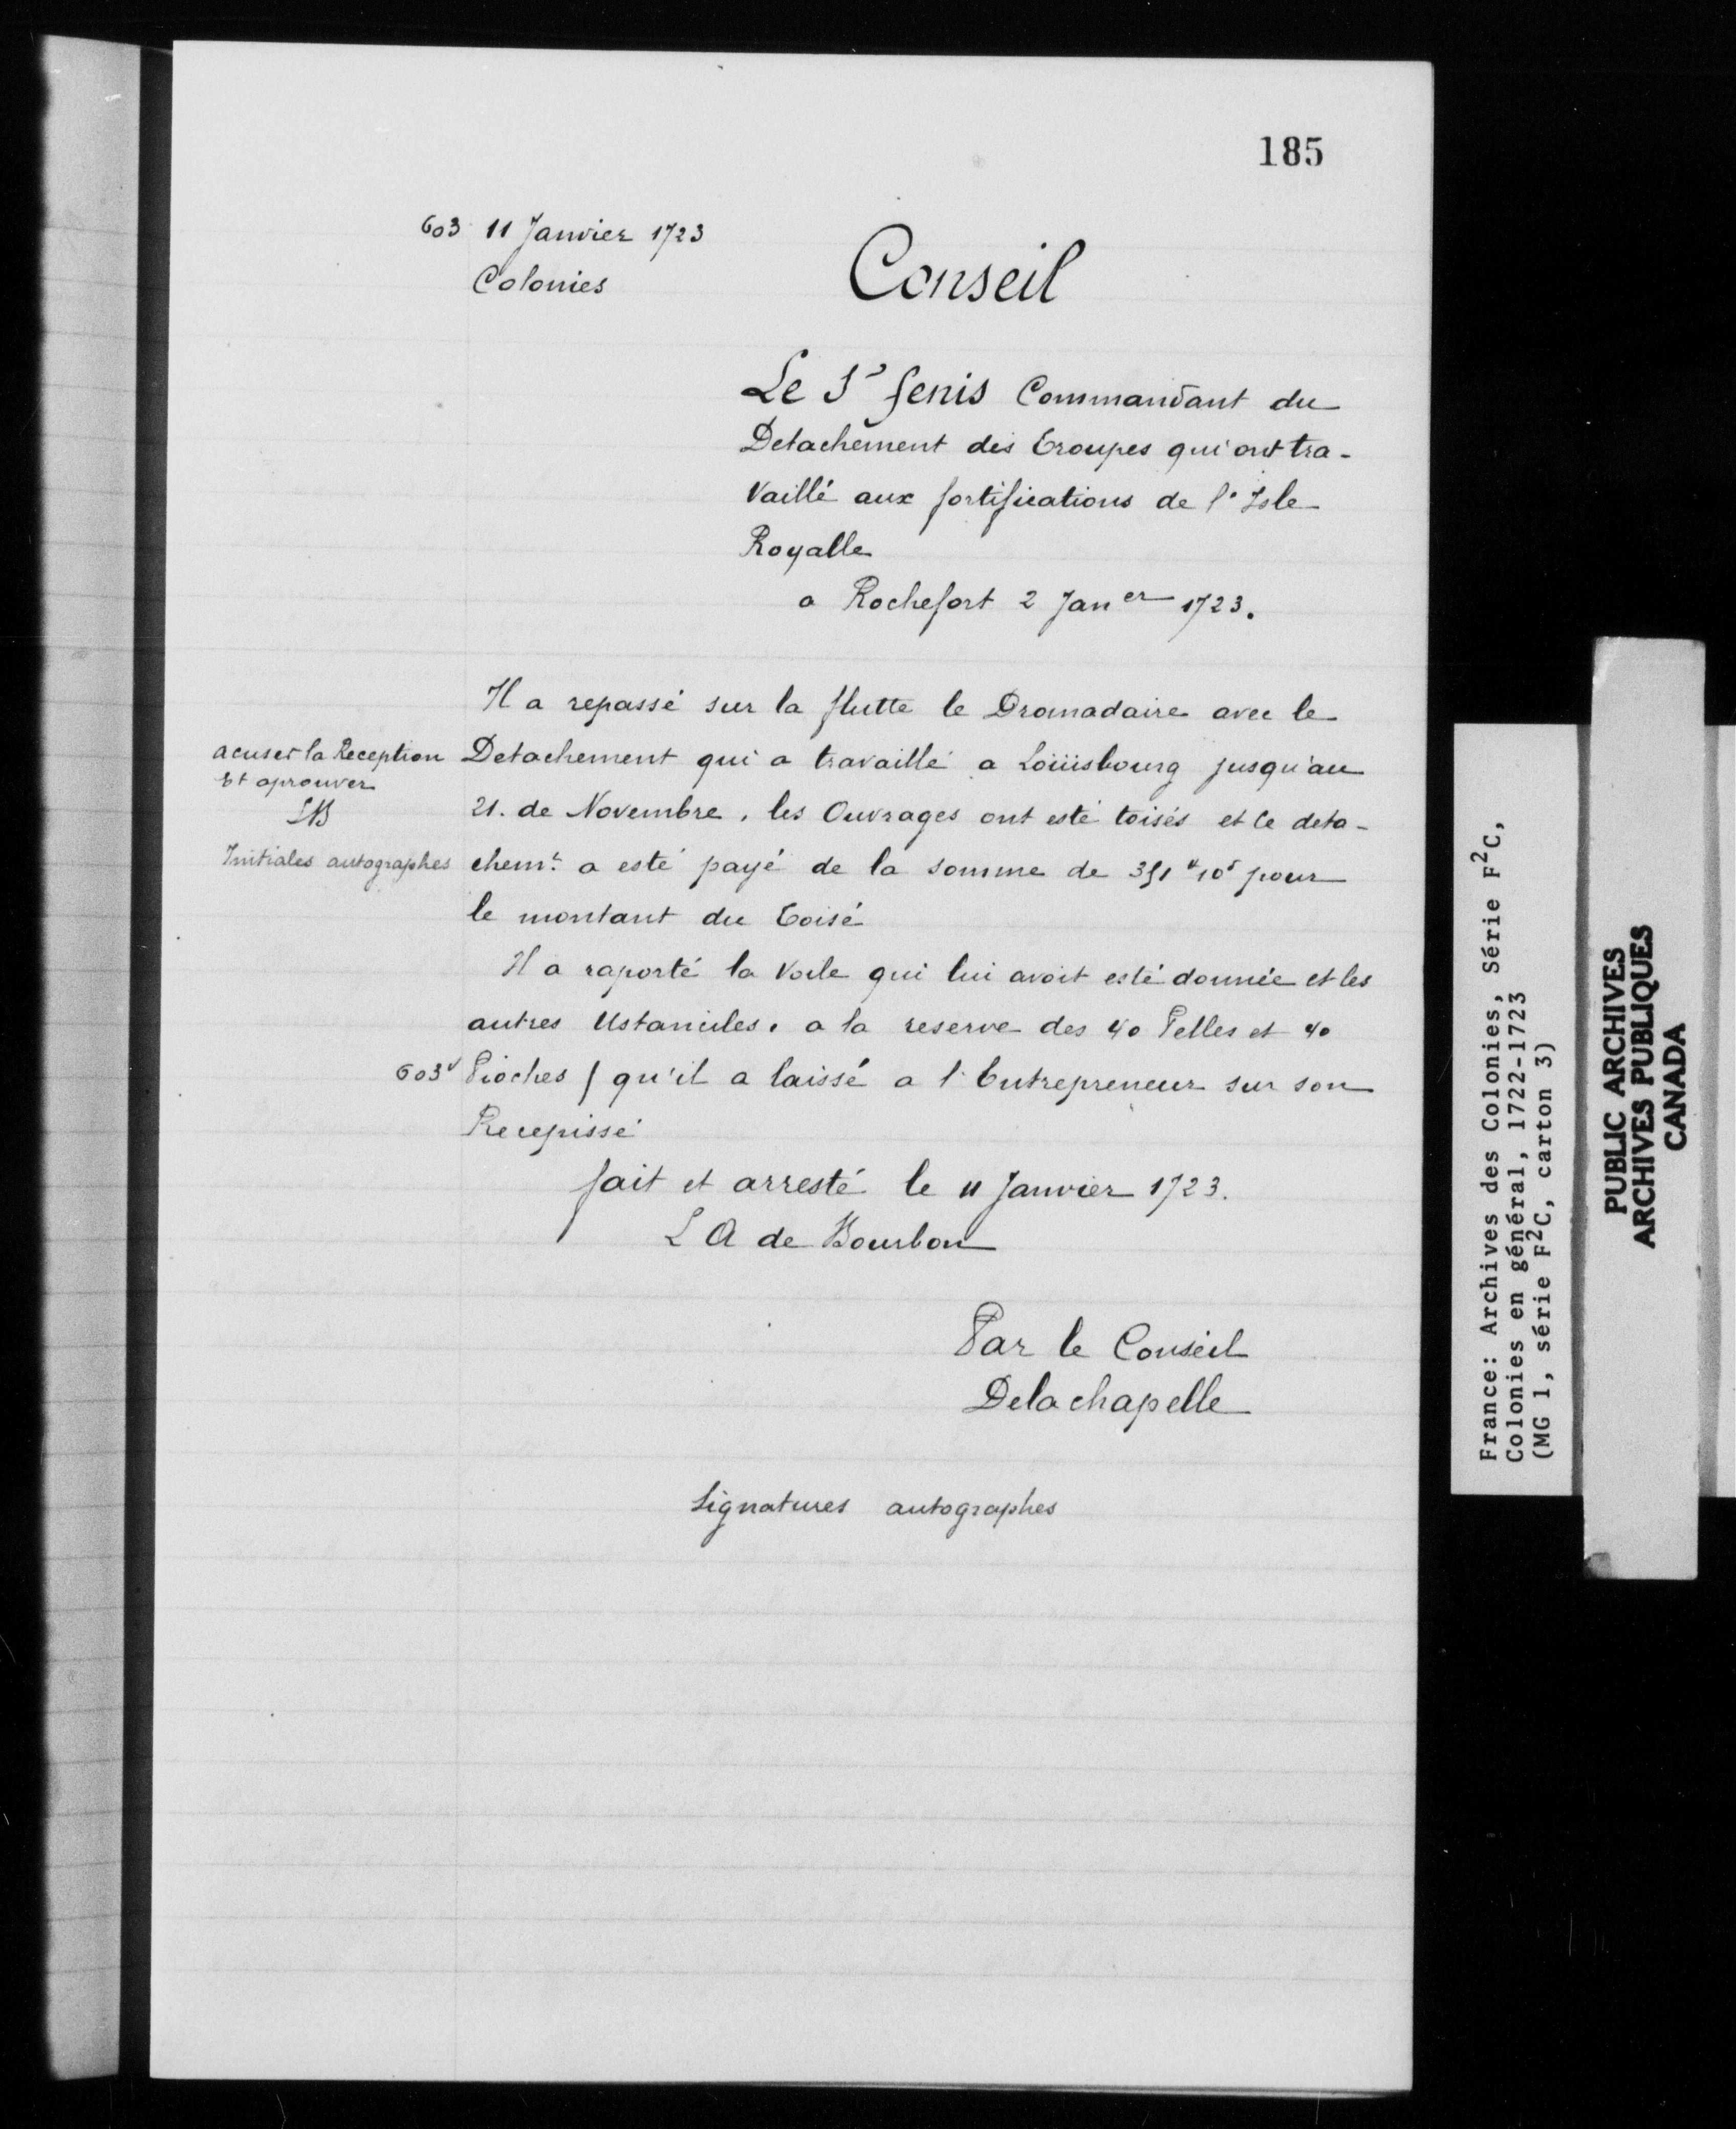 185
603 11 Janvier 1723
Colonies
Conseil
Le Sr Senis Commandant du
Detachement des troupes qui ont tra-
vaillé aux fortifications de l'Isle
Royalle
a Rochefort 2 Janer 1723.
Il a repassé sur la flutte le Dromadaire avec le
acuser la Reception
Et aprouver
LB
Initiales autographes
Detachement qui a travaillé a Loüisbourg jusqu'au
21. de Novembre, les Ouvrages ont esté toisés et le deta-
chemt. a esté payé de la somme de 351# 10s pour
le montant du toisé
Il a raporté la Voile qui lui avoit esté donnée et les
autres Ustanciles, a la reserve des 40 Pelles et 40
603v Pioches / qu'il a laissé a l'Entrepreneur sur son
Recepissé
fait et arresté le 11 Janvier 1723.
L A de Bourbon
Par le Conseil
Delachapelle
Signatures autographes
France: Archives des Colonies, Série F2C,
Colonies en général, 1722-1723
(MG 1, série F2C, carton 3)
PUBLIC ARCHIVES
ARCHIVES PUBLIQUES
CANADA